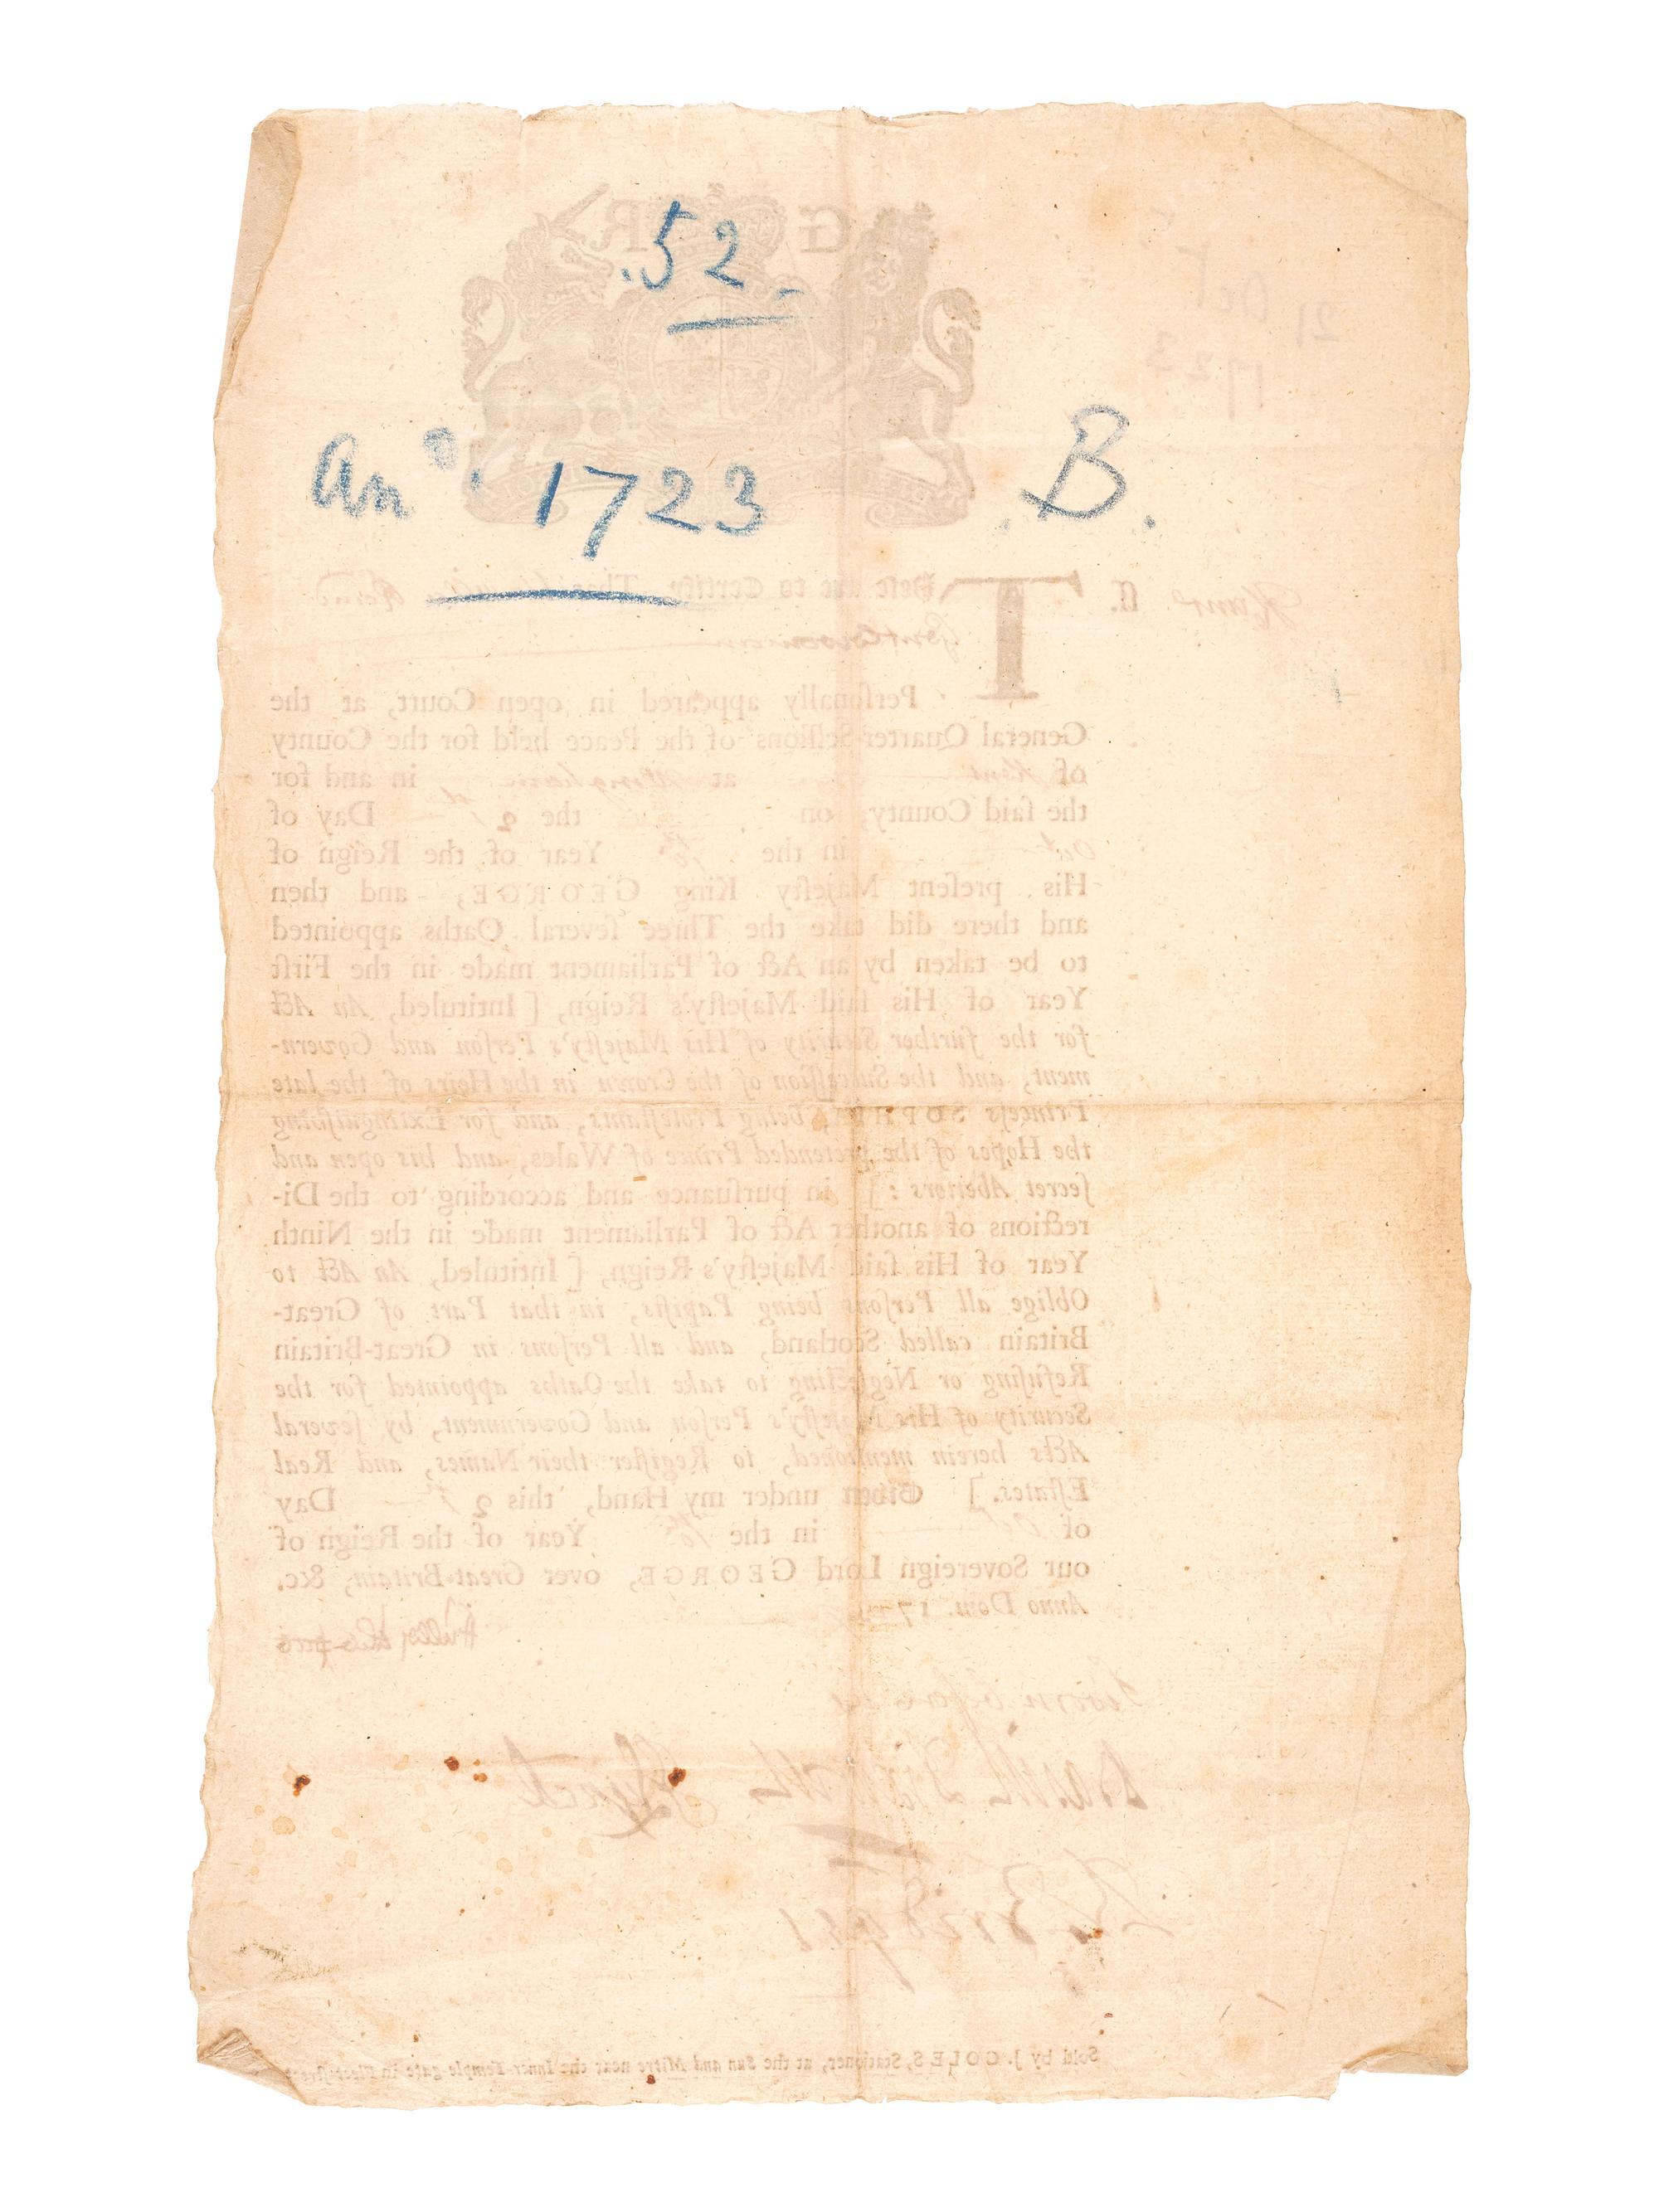 .52.
Anº. 1723
.B.
G R
21 Oct
1723
Kent ſſ.
THeſe are to Certify, That
Gentlewoman
Perſonally appeared in open Court, at the
General Quarter-Seſſions of the Peace held for the County
of Kent at in and for
the ſaid County, on the 21st Day of
Oct in the 10th Year of the Reign of
His preſent Majeſty King GEORGE, and then
and there did take the Three ſeveral Oaths appointed
to be taken by an Act of Parliament made in the Firſt
Year of His ſaid Majeſty's Reign, [ Intituled, An Act
for the further Security of His Majeſty's Perſon and Govern-
ment, and the Succeſſion of the Crown in the Heirs of the late
Princeſs SOPHIA, being Proteſtants, and for Extinguiſhing
the Hopes of the pretended Prince of Wales, and his open and
ſecret Abettors : ] in purſuance and according to the Di-
rections of another Act of Parliament made in the Ninth
Year of His ſaid Majeſty's Reign, [ Intituled, An Act to
Oblige all Perſons being Papiſts, in that Part of Great-
Britain called Scotland, and all Perſons in Great-Britain
Refuſing or Neglecting to take the Oaths appointed for the
Security of His Majeſty's Perſon and Government, by ſeveral
Acts herein mentioned, to Regiſter their Names, and Real
Eſtates. ] Given under my Hand, this 21st Day
of Oct in the 10 Year of the Reign of
our Sovereign Lord GEORGE, over Great-Britain, &c.
Anno Dom. 1723
Sworn before us
Sold by J. COLES, Stationer, at the Sun and Mitre near the Inner-Temple-gate in Fleetſtreet